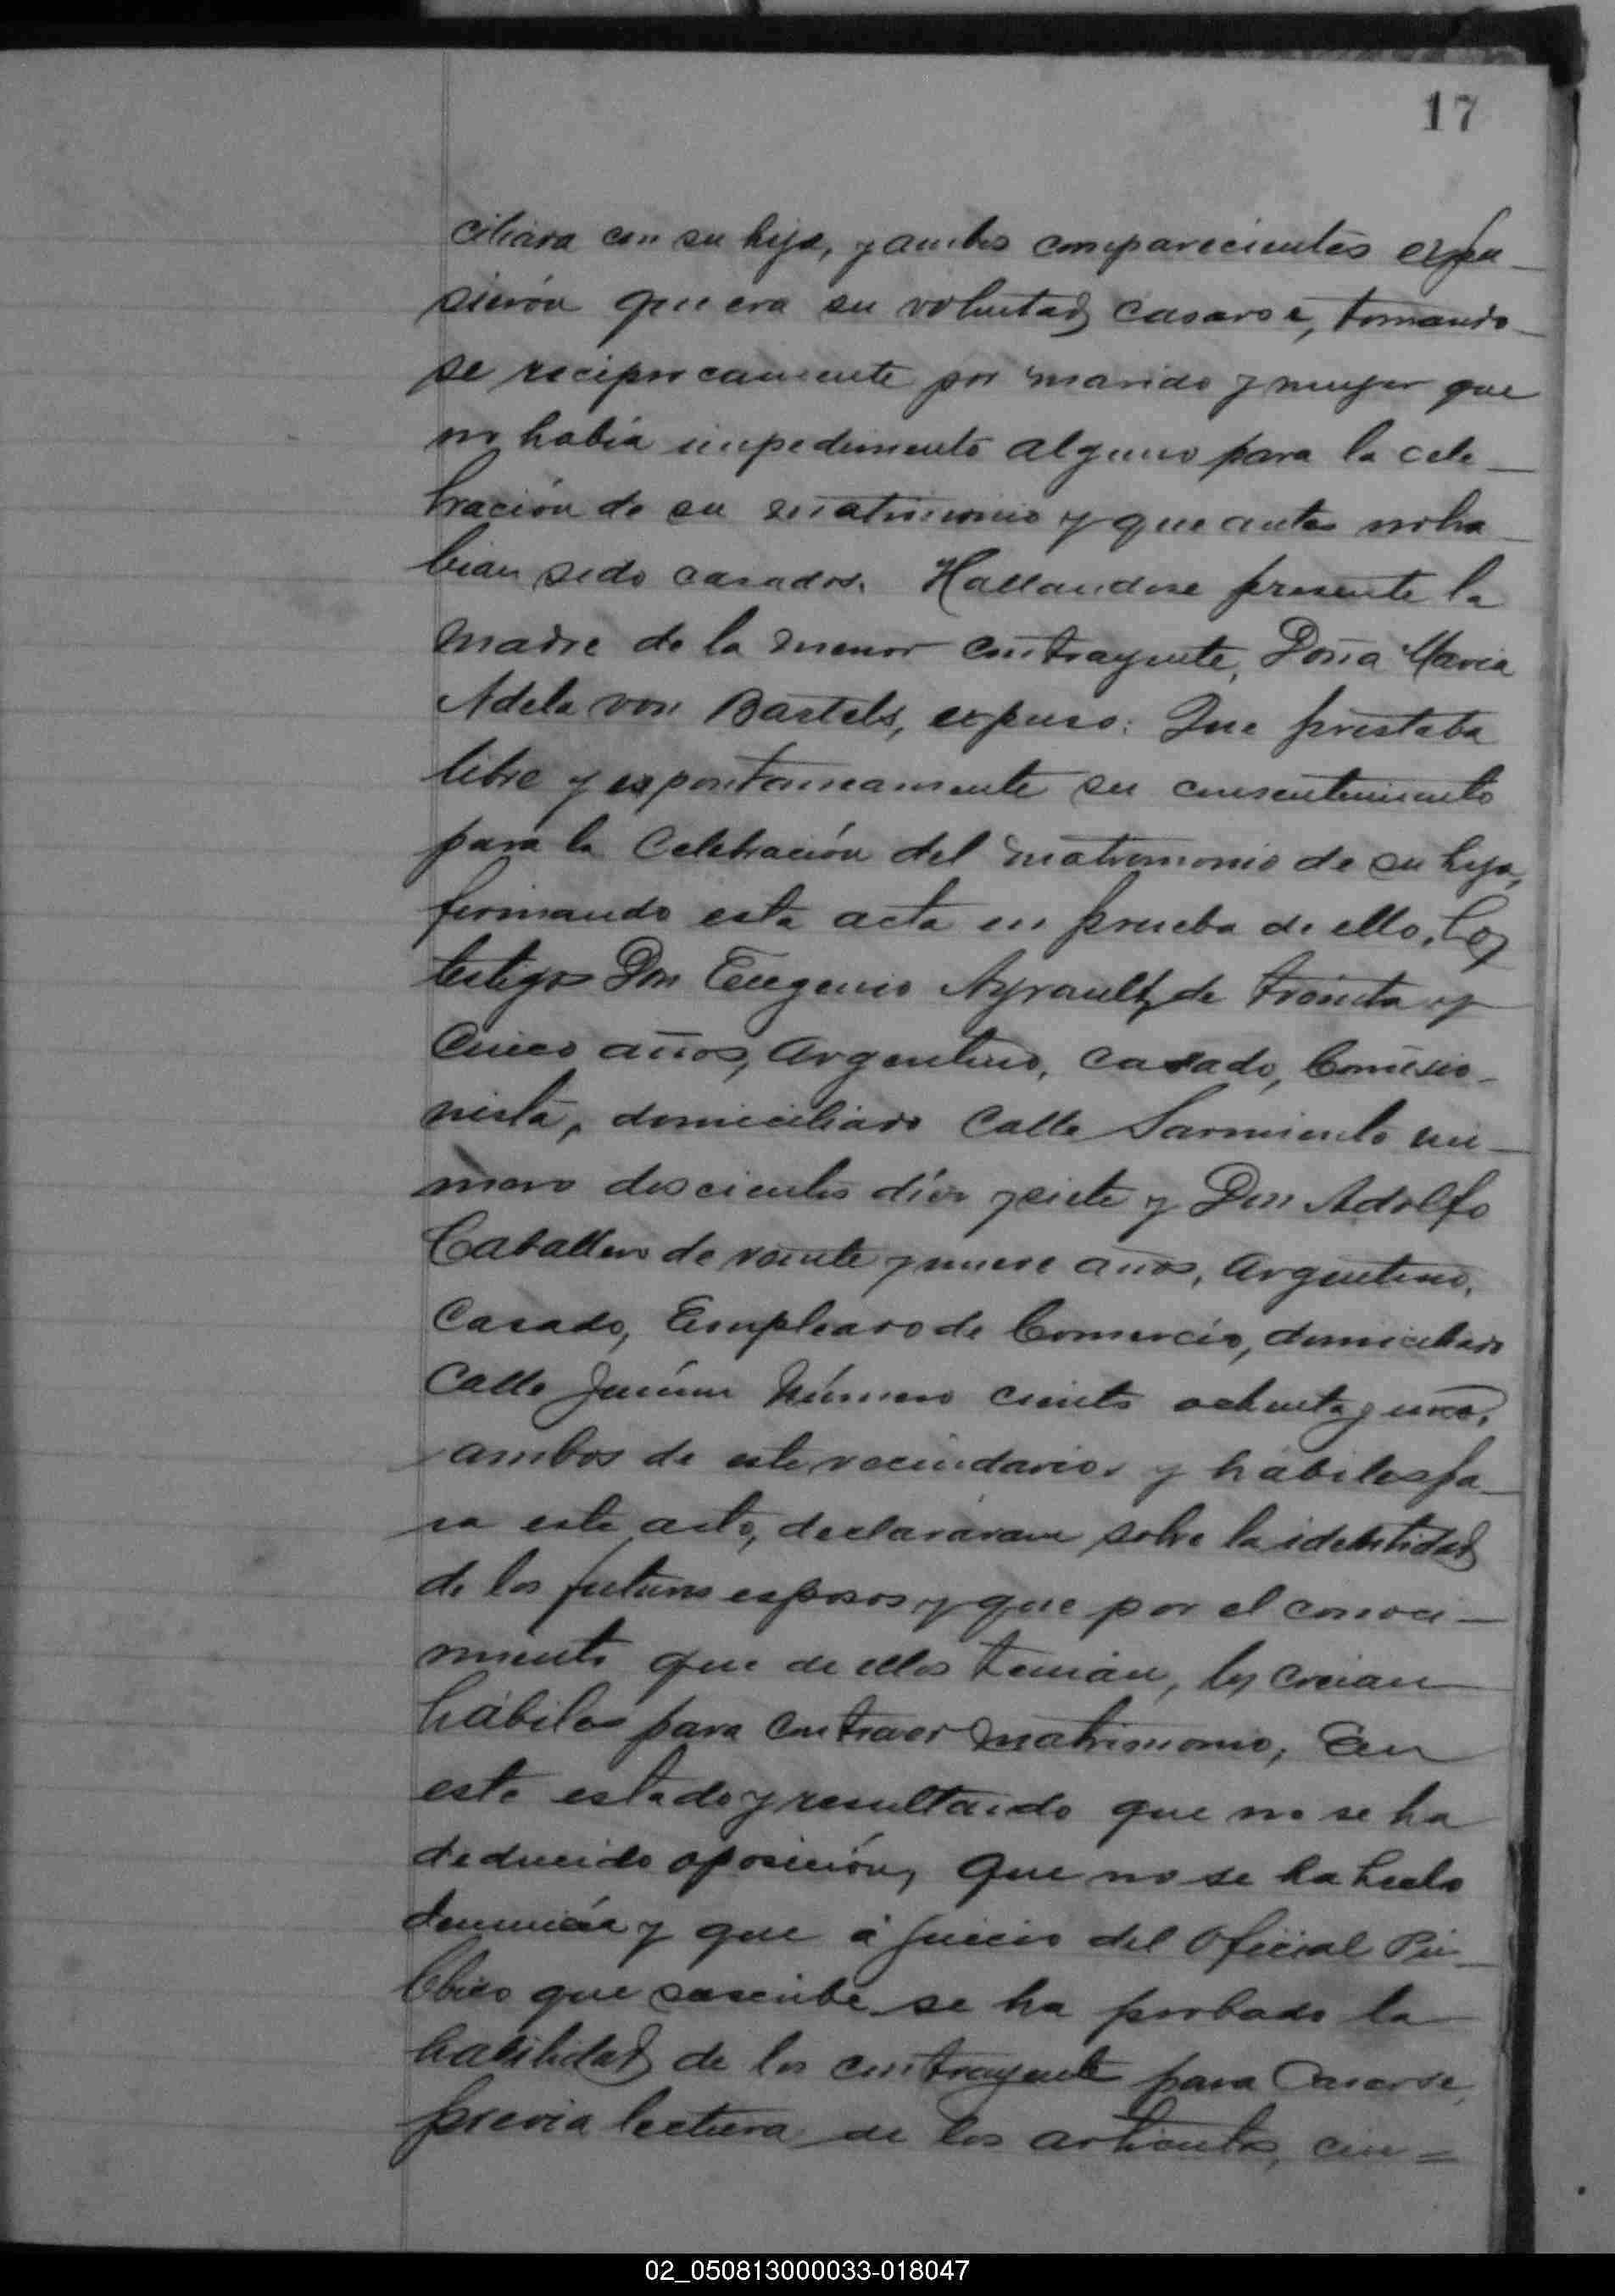 17
ciliada con su hija, y ambos comparecientes expu-
sierón que era su voluntad casarse, tomando-
se reciprocamente por marido y mujer que
no había impedimento alguno para la cele-
bración de su matrimonio y que antes no ha-
bian sido casados. Hallandose presente la
madre de la menor contrayente, Doña Maria
Adela von Bartels, expuso: Que prestaba
libre y espontaneamente su consentimiento
para la Celebración del matrimonio de su hija,
firmando esta acta en prueba de ello. Los
testigos Don Eugenio Ayrault, de treinta y
Cinco años, Argentino, casado, Comisio-
nista, domiciliado Calle Sarmiento nu-
mero doscientos diez y siete y Don Adolfo
Caballero de veinte y nueve años, Argentino,
Casado, Empleado de Comercio, domiciliado
Calle Junín Número ciento ochenta y uno,
ambos de este vecindario y hábiles pa-
ra este acto, declararan sobre la identidad
de los futuros esposos y que por el conoci-
miento que de ellos tenian, los creian
hábiles para contraer matrimonio, En
este estado y resultando que no se ha
deducido oposición, que no se ha hecho
denuncia y que á juicio del Oficial Pú-
blico que suscribe se ha probado la
habilidad de los contrayente para Casarse,
previa lectura de los articulos, cin=
02_050813000033-018047